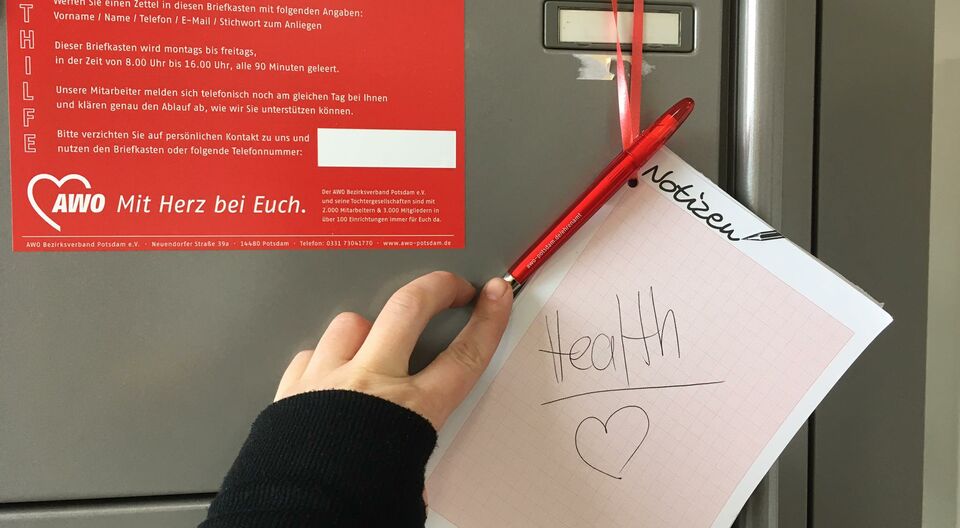 THILFE
Werfen Sie einen Zettel in diesen Briefkasten mit folgenden Angaben:
Vorname / Name / Telefon / E-Mail / Stichwort zum Anliegen
Dieser Briefkasten wird montags bis freitags,
in der Zeit von 8.00 Uhr bis 16.00 Uhr, alle 90 Minuten geleert.
Unsere Mitarbeiter melden sich telefonisch noch am gleichen Tag bei Ihnen
und klären genau den Ablauf ab, wie wir Sie unterstützen können.
Bitte verzichten Sie auf persönlichen Kontakt zu uns und
nutzen den Briefkasten oder folgende Telefonnummer:
AWO Mit Herz bei Euch.
Der AWO Bezirksverband Potsdam e.V.
und seine Tochtergesellschaften sind mit
2.000 Mitarbeitern & 3.000 Mitgliedern in
über 100 Einrichtungen immer für Euch da.
AWO Bezirksverband Potsdam e.V. · Neuendorfer Straße 39a · 14480 Potsdam · Telefon: 0331 73041770 · www.awo-potsdam.de
awo-potsdam.de/ehrenamt
Notizen
Health